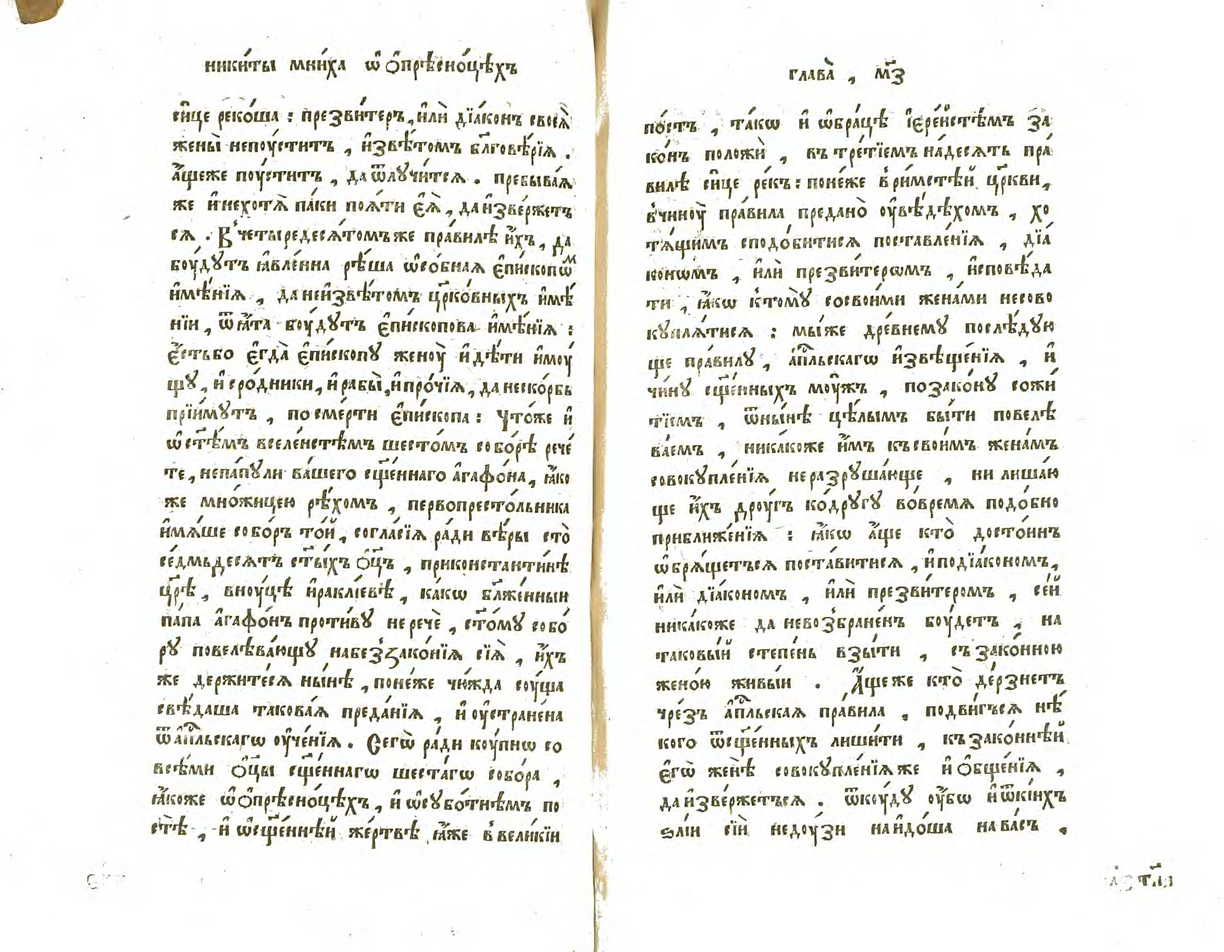 никѝты мни́ха ѡ҆ ѻ҆прѣсно́цѣхъ
си́це реко́ша : презви́теръ, и҆лѝ дїа́конъ своеѧ̀
жены̀ непоу́ститъ , и҆звѣ́томъ бл҃говѣ́рїѧ .
а҆́щеже поу́ститъ , да ѿлꙋчи́тсѧ . пребыва́ѧ
же и҆ нехотѧ̀ па́ки поѧ́ти є҆ѧ̀ , да и҆зве́ржет
сѧ . В четыредесѧ́томъже пра́вилѣ и҆́хъ , да
бо́удꙋтъ ꙗ҆вле́нна рѣ́ша ѡ҆со́бнаѧ є҆пи́скопѡм
и҆мѣ́нїѧ , да неи҆звѣ́томъ цр҃ко́вныхъ и҆мѣ́
нїи , ѿѧ҆́та бо́удꙋтъ є҆пи́скопова и҆мѣ́нїѧ :
є҆́стьбо є҆гда̀ є҆пи́скопꙋ женоу̀ и҆ дѣ́ти и҆моу́
щꙋ , и҆ сро́дники , и҆ рабы̀ , и҆ про́чїѧ , да неско́рбь
прїи́мꙋтъ , по сме́рти є҆пи́скопа : что́же и҆
ѡ҆ст҃ѣ́мъ вселе́нстѣмъ шесто́мъ собо́рѣ рече́
те , непа́пꙋли ва́шего сщ҃е́ннаго а҆гафо́на , ꙗ҆ко
же мно́жицею рѣ́хомъ , первопресто́льника
и҆мѧ́ше собо́ръ то́й , согла́сїѧ ра́ди вѣ́ры сто̀
се́дмьдесѧтъ ст҃ы́хъ ѻ҆ц҃ъ , приконстанти́нѣ
цр҃ѣ̀ , вноу́цѣ и҆ра́клїевѣ , ка́кѡ бл҃же́нныи
па́па а҆гафо́нъ проти́вꙋ не речѐ , ст҃о́мꙋ собо́
рꙋ повелѣва́ющꙋ набеззако́нїѧ сїѧ̀ , и҆́хъ
же держите́сѧ ны́нѣ , поне́же чю́жда соу́ща
свѣ́даша такова́ѧ преда́нїѧ , и҆ оу҆стране́на
ѿ а҆пⷭ҇льскагѡ оу҆че́нїѧ . Сегѡ̀ ра́ди коу́пнѡ со
все́ми ѻ҆ц҃ы сщ҃е́ннагѡ шеста́гѡ собо́ра ,
ꙗ҆коже ѡ҆ ѻ҆прѣсно́цѣхъ , и҆ ѡ҆сꙋбо́тнѣмъ по
стѣ̀ , и҆ ѡ҆сщ҃е́ннѣй же́ртвѣ ꙗ҆́же в вели́кїи
глава̀ , м҃з
по́стъ , та́кѡ и҆ ѡ҆бра́цѣ і҆ере́йстѣмъ за
ко́нъ положѝ , въ тре́тїемъ на́десѧть пра́
вилѣ си́це ре́къ : поне́же в ри́мстѣй цр҃кви ,
в чиноу̀ пра́вила предано̀ оу҆вѣ́дѣхомъ , хо
тѧ́щимъ сподо́битисѧ поставле́нїѧ , дїа́
конѡмъ , и҆лѝ презви́терѡмъ , и҆сповѣ́да
ти , ꙗ҆́кѡ ктомꙋ̀ сосвои́ми жена́ми несово
кꙋплѧ́тисѧ : мы́же дре́внемꙋ послѣ́дꙋю
ще пра́вилꙋ , а҆пⷭ҇льскагѡ и҆звѣще́нїѧ , и҆
чи́нꙋ сщ҃е́нныхъ моу́жъ , позако́нꙋ сожи́
тїемъ , ѿны́нѣ цѣ́лымъ бы́ти повелѣ
ва́емъ , ника́коже и҆̀мъ къ свои́мъ жена́мъ
совокꙋпле́нїѧ неразрꙋша́юще , ни лиша́ю
ще и҆́хъ дрꙋ́гъ ко́дрꙋгꙋ во́времѧ подо́бно
приближе́нїѧ : ꙗ҆́кѡ а҆́ще кто̀ досто́инъ
ѡ҆брѧ́щетьсѧ поста́витисѧ , и҆поді́акономъ ,
и҆лѝ дїа́кономъ , и҆лѝ презви́теромъ , се́й
ника́коже да невозбране́нъ бо́удетъ , на
таковы́й сте́пень взы́ти , съ зако́нною
жено́ю живы́и . А҆́щеже кто̀ де́рзнетъ
чре́зъ а҆пⷭ҇льскаѧ пра́вила , подви́гъсѧ нѣ́
кого ѿсщ҃е́нныхъ лиши́ти , къ зако́ннѣй
є҆гѡ̀ женѣ̀ совокꙋпле́нїѧже и҆ ѻ҆бще́нїѧ ,
да и҆зве́ржетьсѧ . ѿкоу́дꙋ оу҆́бѡ и҆ ѿки́ихъ
ѕлі́и сїѝ недоу́зи наидо́ша на ва́съ ,